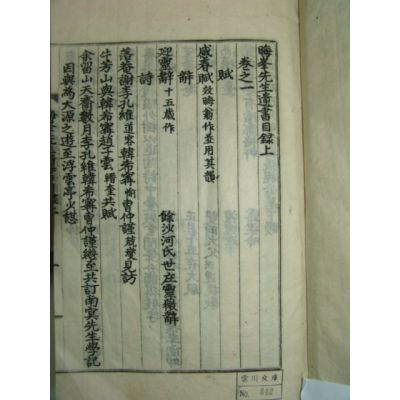 晦峯先生遺書目錄上
卷之一
賦
感春賦 效晦翁作並用其韻
辭
迎靈辭 十五歲作 餘沙河氏世庄靈辭
詩
落 謝李孔維 道容 韓希甯 愉 曹仲謹 兢燮 見訪
牛芳山與韓希甯趙子雲 共賦
余留山天齋數月李孔維韓希甯曹仲謹繼至共訂南冥先生學記
因與爲大源之遊至浮雲亭少憇
雲川文庫
No. 842